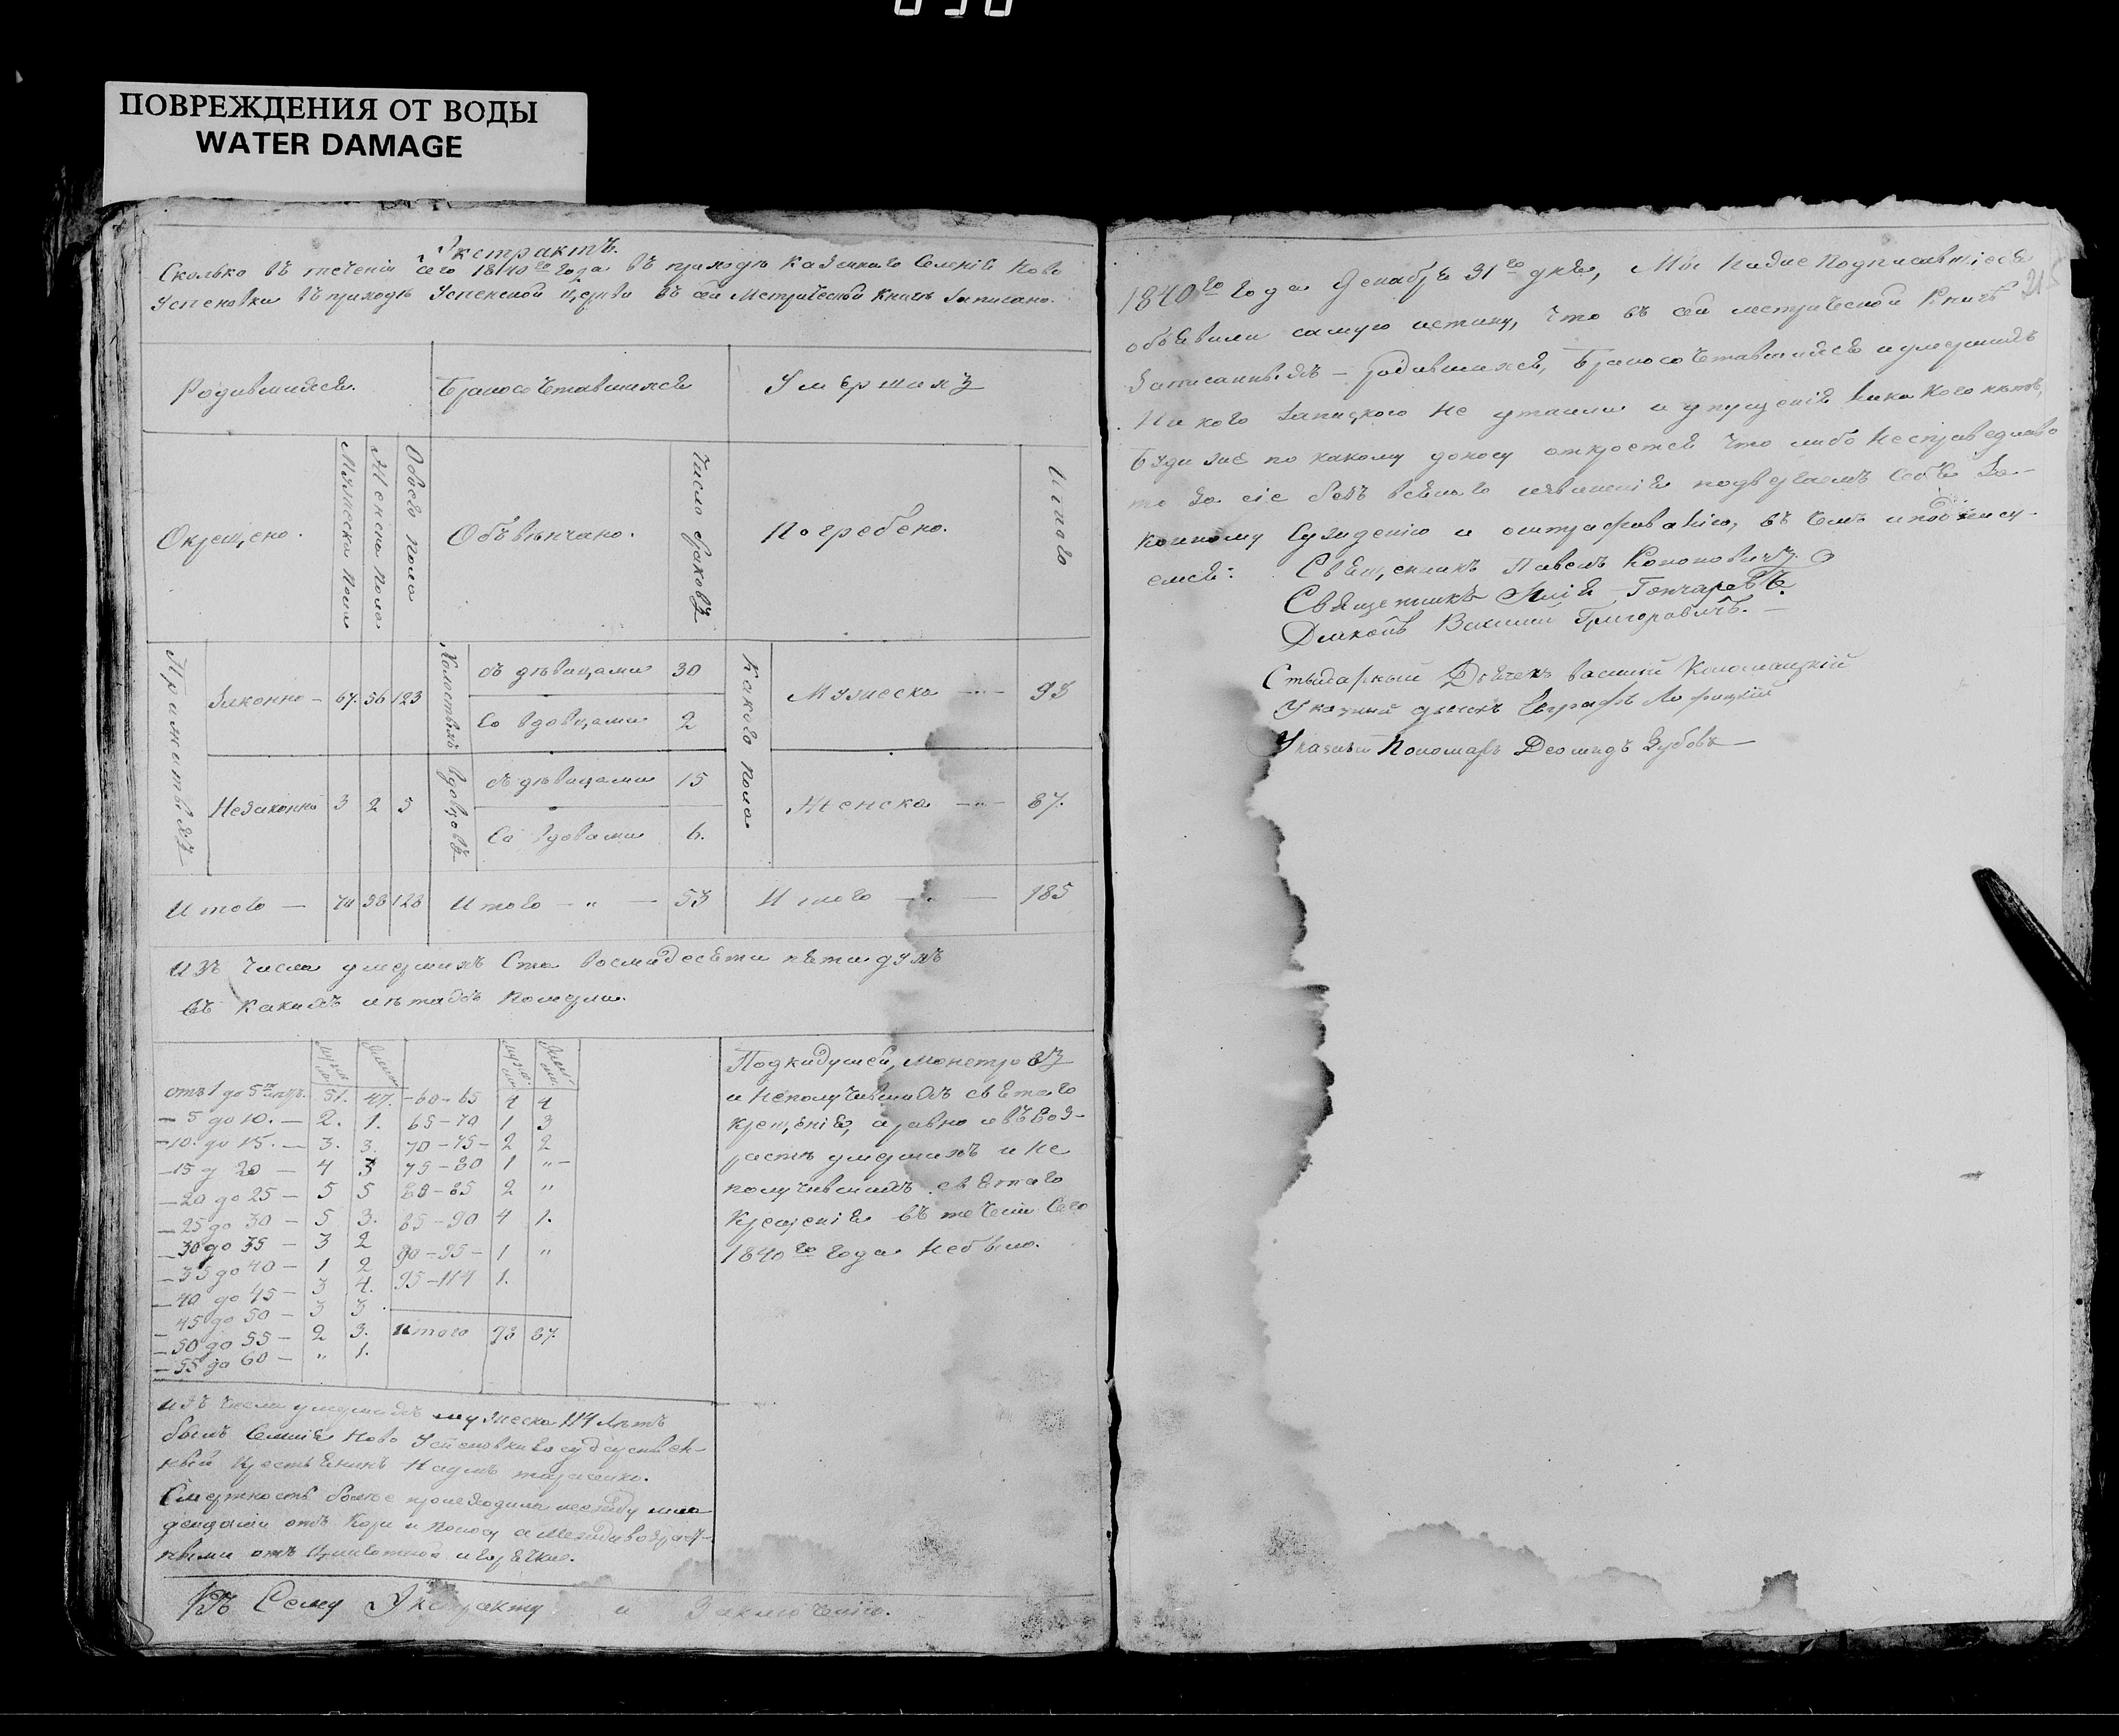 ПОВРЕЖДЕНИЯ ОТ ВОДЫ
WATER DAMAGE
Экстрактъ.
Сколько въ теченіи сего 1840го года въ приходѣ казеннаго Селенія Ново
Успеновки въ приходѣ Успенской Церкви въ сей Метрической Книгѣ Записано.
Родившихся.
Бракосочетавшихся
Умершихъ
Окрещено.
Мужеска пола
Женска пола
Обоего пола
Обвѣнчано.
Число браковъ
Погребено.
Итого
Прижитыхъ
Законно – 67. 56 123
Незаконно 3 2 5
Холостыхъ
съ дѣвицами 30
Со вдовицами 2
вдовцовъ
съ дѣвицами 15
Со вдовами 6.
Какого пола
Мужеска 98
Женска 87.
Итого — 70 58 128
Итого — „ — 53
Итого — 185
Изъ числа умершихъ Ста восмидесяти пяти душъ
въ какихъ лѣтахъ померли.
отъ 1 до 5ти 51. 47.
– 5 до 10. — 2. 1.
– 10. до 15. — 3. 3.
– 15 д 20 — 4 3
– 20 до 25 — 5 5
– 25 до 30 — 5 3.
– 30 до 35 — 3 2
– 35 до 40 — 1 2
– 40 до 45 — 3 4.
– 45 до 50 — 3 3
– 50 до 55 — 2 3.
– 55 до 60 — „ 1.
– 60–65 4 4
65–70 1 3
70–75– 2 2
75–80 1 „–
80–85 2 „
85–90 4 1.
90–95– 1 „
95–114 1.
Итого 98 87.
Подкидушей, монстровъ
и неполучившихъ святаго
крещенія, а равно и въ воз-
растѣ умершихъ и не
получившихъ святаго
Крещенія въ теченіи сего
1840го года небыло.
изъ числа умершихъ мужеска 114 лѣтъ
былъ Селенія Ново Успеновки Государствен-
ный крестьянинъ Наумъ
Смертность болѣе происходила между мла
денцами отъ Кори и поносу а между возраст-
ными отъ и горячки.
Къ Сему Экстракту и Заключенію.
215
1840го года Декабря 31го дня, Мы ниже Подписавшіеся
объявили самую истину, что въ сей метрической Книгѣ
Записанныхъ – родившихся, Бракосочетавшихся и умершихъ
Никого не утаили и упущенія никакого нѣтъ,
Буди же по какому доносу откроется что либо несправедливо
то за сіе безъ всякаго извиненія подвергаемъ себя За-
конному Сужденію и оштрафованію, въ чемъ и подпису-
емся:
Священникъ Павелъ Кононовичъ
Священникъ Гончаровъ.
Диаконъ Василій Григоровичъ. –
Дьячекъ Василій
Указный дьячекъ Евграфъ
Указный Пономарь Деомидъ Зубовъ —